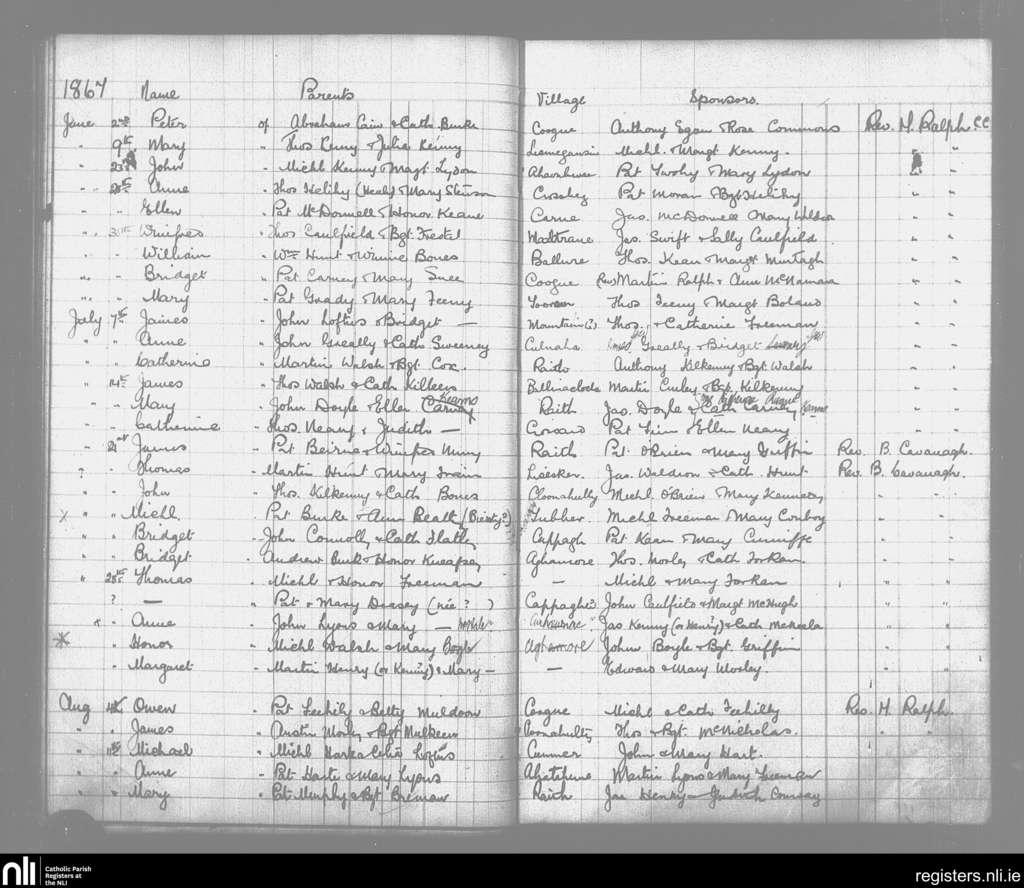 1867 Name Parents Village Sponsors.
June 2nd Peter of Abraham Cain & Cath Burke Coogue Anthony Egan & Rose Commons Rev. M. Ralph C.C
" 9th Mary " Thos Kenny & Julia Kenny Michl. & Margt Kenny. " "
" 23rd John " Michl Kenny & Margt Lydon Pat Twohy & Mary Lydon " "
" Anne " Thos Helihy (Healy) & Mary Crossbey Pat Moran & Bgt Helihy " "
" " Ellen " Pat McDonnell & Honor Keane Carne Jas. McDonnell & Mary " "
" 30th Winifred " Thos Caulfield & Bgt. Jas. Swift & Sally Caulfield " "
" " William " Wm Hunt & Winnie Bones Ballure Thos. Kean & Margt Murtagh " "
" " Bridget " Pat Carney & Mary Coogue (Rev) Martin Ralph & Anne McNamara " "
" " Mary " Pat Grady & Mary Feeny Thos Feeny & Margt Boland " "
July 7th James " John Loftus & Bridget — Mountain (?) Thos. & Catherine Freeman " "
" " Anne " John Greally & Cath Sweeney Culnaha Greally & Bridget " "
" " Catherine " Martin Walsh & Bgt. Cox. Raith Anthony Kilkenny & Bgt Walsh " "
" 14th James " Thos Walsh & Cath Killeen Martin Curley & Bgt. Kilkenny " "
" " Mary " John Doyle & Ellen Carney Kearns Raith Jas. Doyle & Cath Carney " "
" " Catherine " Thos. Neary & Judith — Crossard Pat Finn & Ellen Neary " "
" 21st James " Pat Beirne & Winifred Raith Pat O'Brien & Mary Griffin Rev. B. Cavanagh.
? " Thomas " Martin Hunt & Mary Liscker. Jas. Waldron & Cath Hunt Rev. B. Cavanagh.
" " John " Thos. Kilkenny & Cath Bones Cloonahully Michl. O'Brien & Mary Kennedy " "
x " " Michl. " Pat Burke & Ann Beatty Tubber. Michl Freeman & Mary Conboy " "
" " Bridget " John Connolly & Cath Flatley Cappagh Pat Kean & Mary Cunniffe " "
" " Bridget " Andrew Burk & Honor Aghamore Thos. Morley & Cath Forkan. " "
" 28th Thomas " Michl & Honor Freeman — Michl & Mary Forkan " "
? — " Pat & Mary Deasey (née ? ) Cappagh? John Caulfield & Margt McHugh " "
" " Anne " John Lyons & Mary — Jas Kenny (or Henry) & Cath " "
* " " Honor " Michl Walsh & Mary Boyle Aghamore John Boyle & Bgt. Griffin " "
" " Margaret " Martin Henry (or Kenny) & Mary — — Edward & Mary Morley. " "
Aug 4th Owen " Pat Feehily & Betty Muldoon Coogue Michl & Cath Feehilly Rev. M. Ralph
" " James " Austin Morley & Bgt Mulkeen Thos & Bgt. McNicholas. " "
" 11th Michael " Michl Cunner John & Mary Hart. " "
" " Anne " Pat Harte & Mary Lyons Martin Lyons & Mary Freeman
" " Mary " Pat Murphy & Bgt Brennan Raith Jas Henry — Judith
nli Catholic Parish
Registers at
the NLI
registers.nli.ie